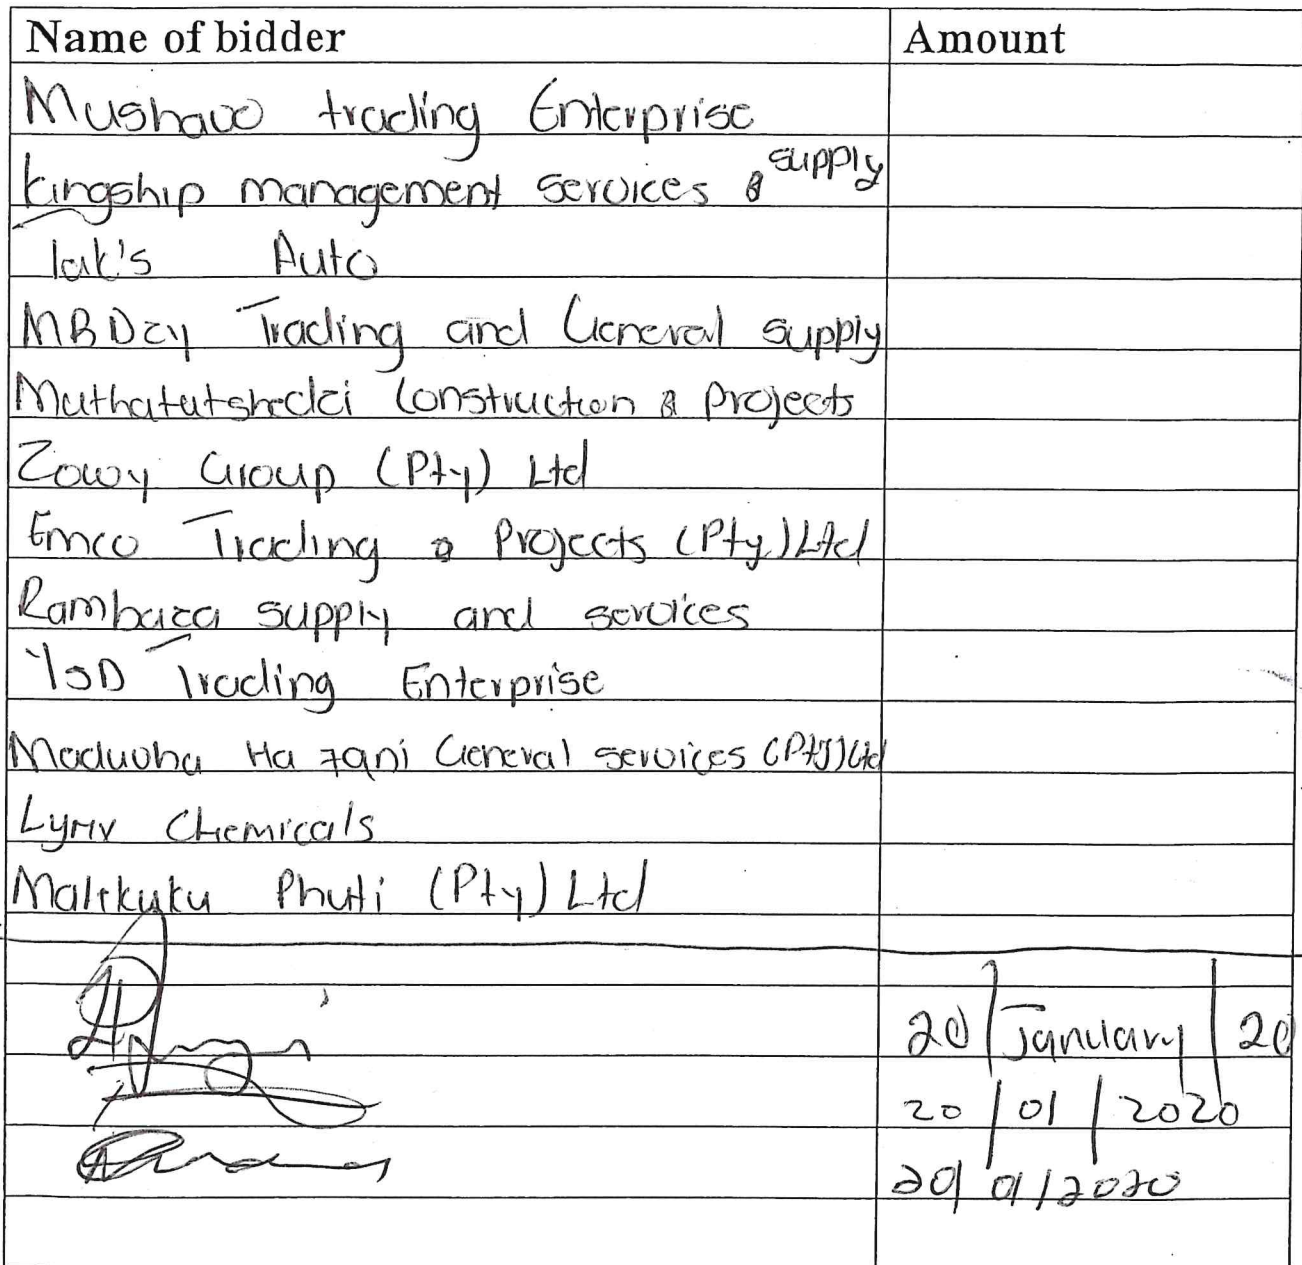 Name of bidder Amount
Mushavo trading Enterprise
Kingship management services & supply
Tak's Auto
MBDzy Trading and General supply
Muthatutshedzi Construction & Projects
Zowy Group (Pty) Ltd
Emco Trading & Projects (Pty) Ltd
Rambaza supply and services
YSD Trading Enterprise
Maduvha Ha zani General services (Pty) Ltd
Chemicals
Phuti (Pty) Ltd
20 / January / 20
20 / 01 / 2020
20/01/2020